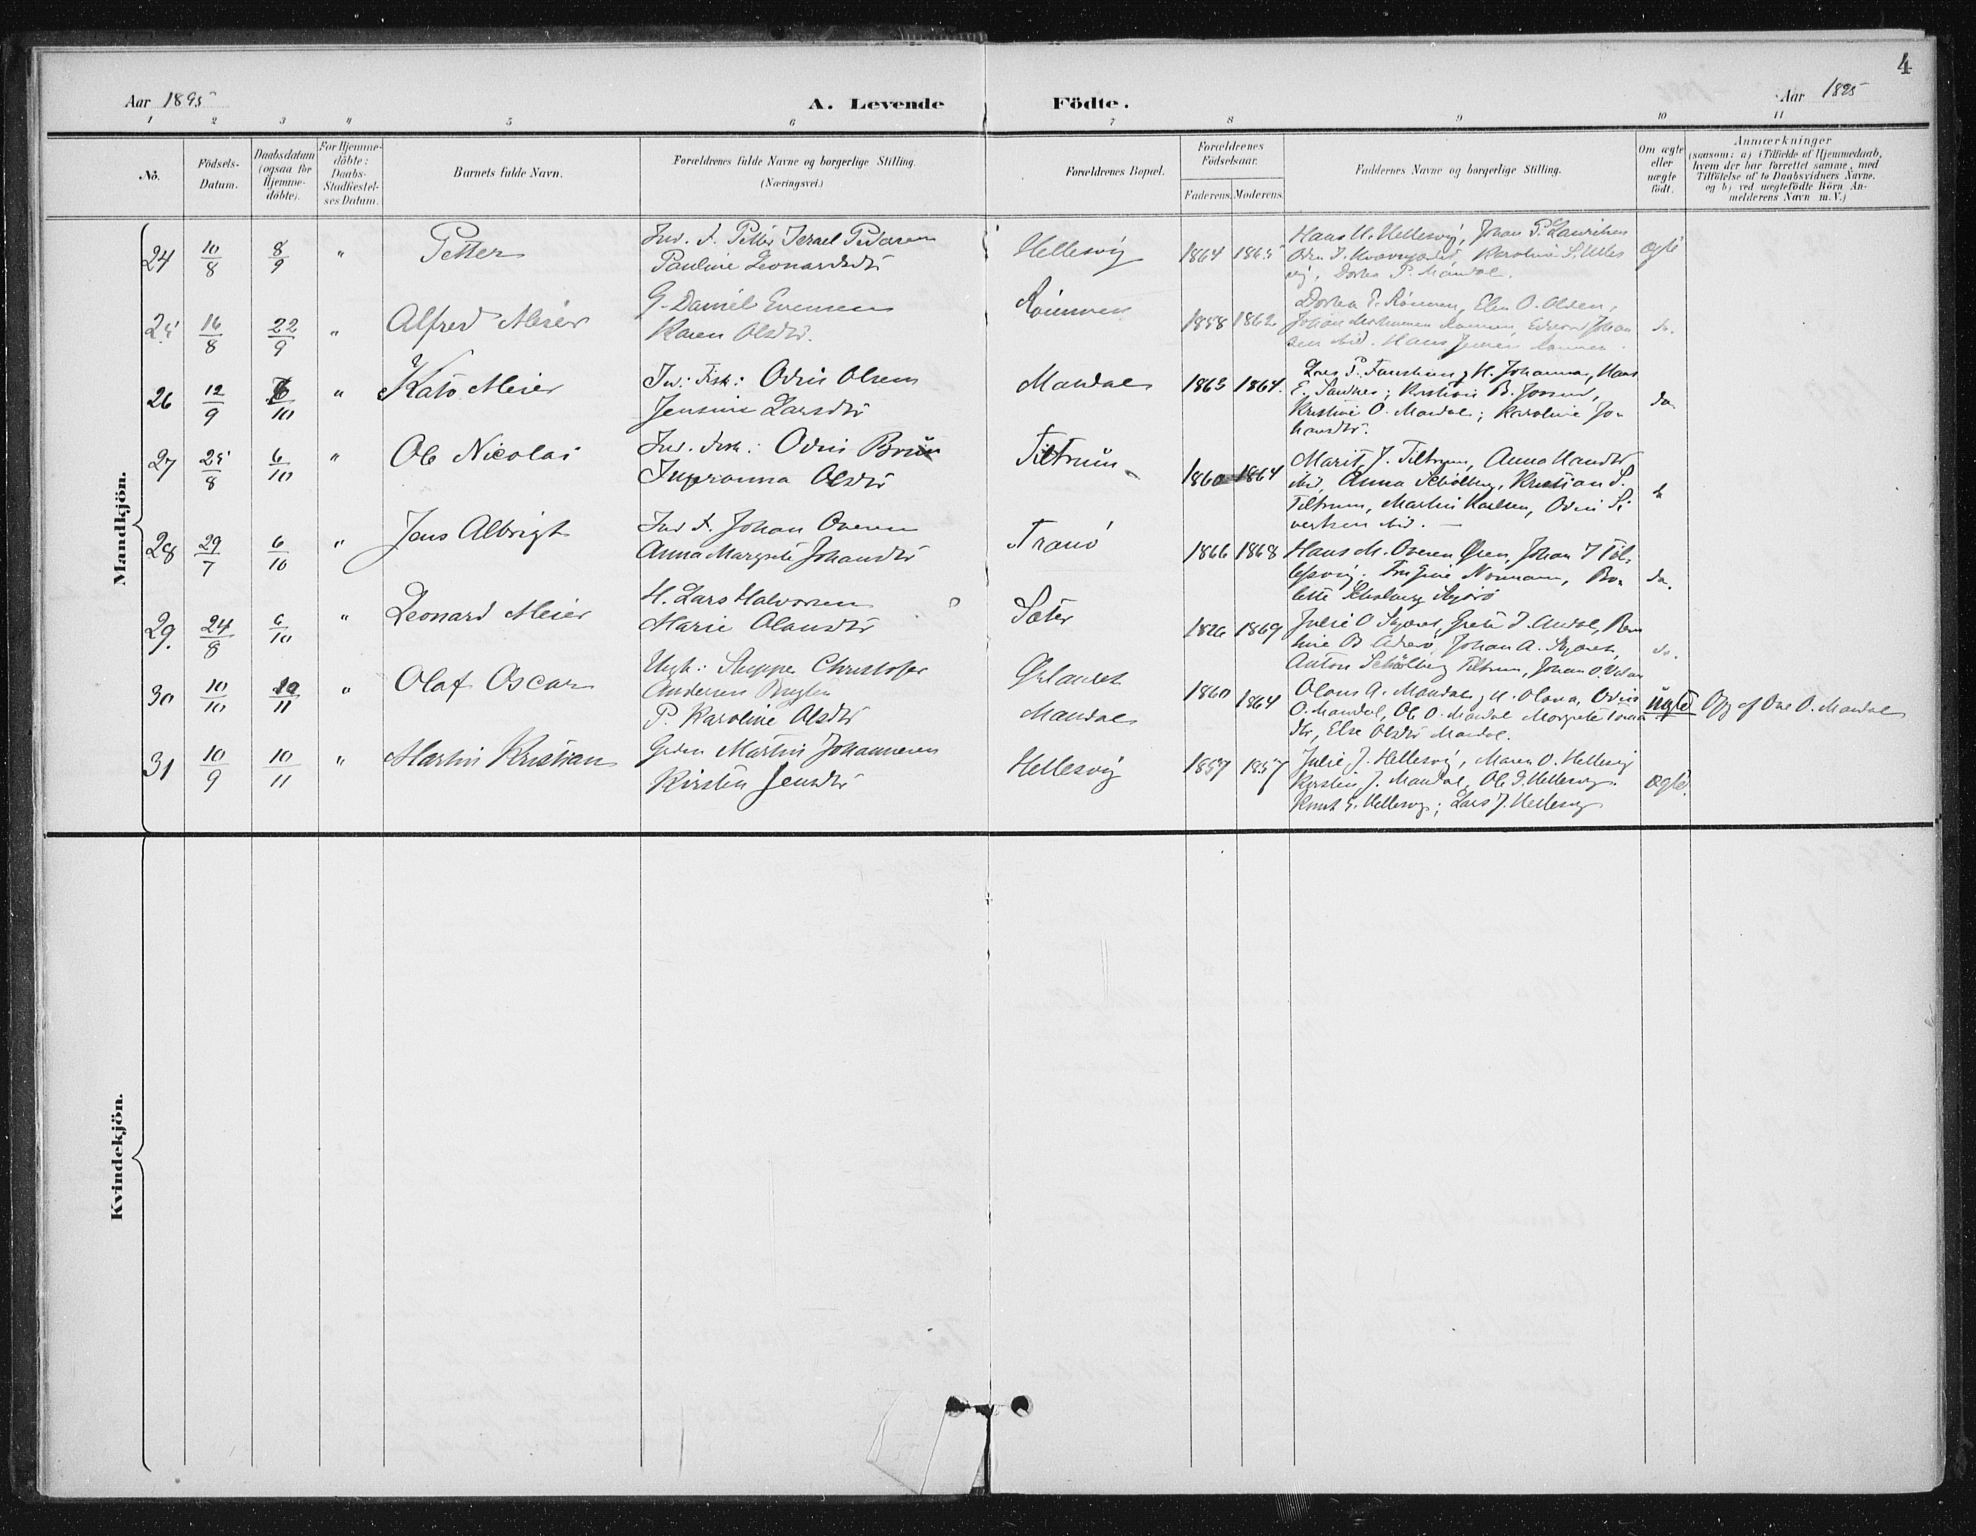 4
Aar 1895 A. Levende Födte. Aar 1895
1 2 3 4 5 6 7 8 9 10 11
No.
Födsels-Datum.
Daabsdatum (ogsaa for Hjemme-döbte).
For Hjemme-döbte: Daabs-Stadfæstel-ses Datum.
Barnets fulde Navn.
Forældrenes fulde Navne og borgerlige Stilling. (Næringsvei.)
Forældrenes Bopæl.
Forældrenes Födselsaar.
Faderens. Moderens.
Faddernes Navne og borgerlige Stilling.
Om ægte eller uægte födt.
Anmærkninger
(saasom: a) i Tilfælde af Hjemmedaab,
hvem der har forrettet samme, med
Tilföielse af to Daabsvidners Navne.
og b) ved uægtefödte Börn An-
melderens Navn m. V.)
Mandkjön.
24 10/8 8/9 " Petter
Ind. F. Petter Israel Pedersen
Pauline Leonardsdtr
Hellesvig 1864 1865
Hans H. Hellesvig, Johan P. Lauritsen
Karoline S. Helles
vig, Dortea P. Mandal.
ægte
25 16/8 22/9 " Alfred Meier
G. Daniel Evensen
Karen Olsdtr.
Rönnen 1858 1862
Dortea P. Rönnen, Elen O. Olsen,
Johan Rönnen, Edvard Johan
sen ibid. Hans Jensen Rönnen.
do.
26 12/9 6/10 " Kato Meier
In: Fisk: Odin Olsen
Jensine Larsdtr
Mandal 1863 1864.
Lars P. Faushaug, H. Johanna, Hans
E. Sandnes; Kristian B. Jossund,
Kristine O. Mandal; Karoline Jo-
hansdtr.
do.
27 25/8 6/10 " Ole Nicolai
Ind. Fisk: Odin Bruun
Ingeranna Olsdtr
Tiltrum 1860 1864
Marit J. Tiltrum, Anna Hansdtr
ibid, Anna Schölberg, Kristian S.
Tiltrum, Martin Karlsen, Odin Si-
vertsen ibid.
28 29/7 6/10 " Jens Albrigt
Ind F. Johan Overen
Anna Margrete Johansdtr
Tranö 1866 1868
Hans M. Overen Ören, Johan J Töl-
Normann, Bo-
lette Scholberg
do.
29. 24/8 6/10 " Leonard Meier
H. Lars Halvorsen
Marie Olausdtr
Sæter 1826 1869
Julie O Skjæret, Grete J. Andal,
Johan A. Skjæret,
Anton Schölberg Tiltrum,
do.
30 10/10 10/11 " Olaf Oscar
Ungk: Skipper Christofer
Andersen
P. Karoline Olsdtr
Örlandet
Mandal 1860 1864
Olaus A. Mandal, H. Olava, Odin
O. Mandal, Ole O. Mandal Margrete
dtr, Else Olsdtr Mandal.
Uægte Opg. af Ove O. Mandal
31 10/9 10/11 " Martin Kristian
Grdm Martin Johannesen
Kirsten Jensdtr
Hellesvig 1857 1857
Julie J. Hellesvig, Maren O. Hellesvig
Kirstin J. Mandal, Ole J. Hellesvig.
Knut G. Hellesvig; Lars J. Hellesvig
ægte.
Kvindekjön.